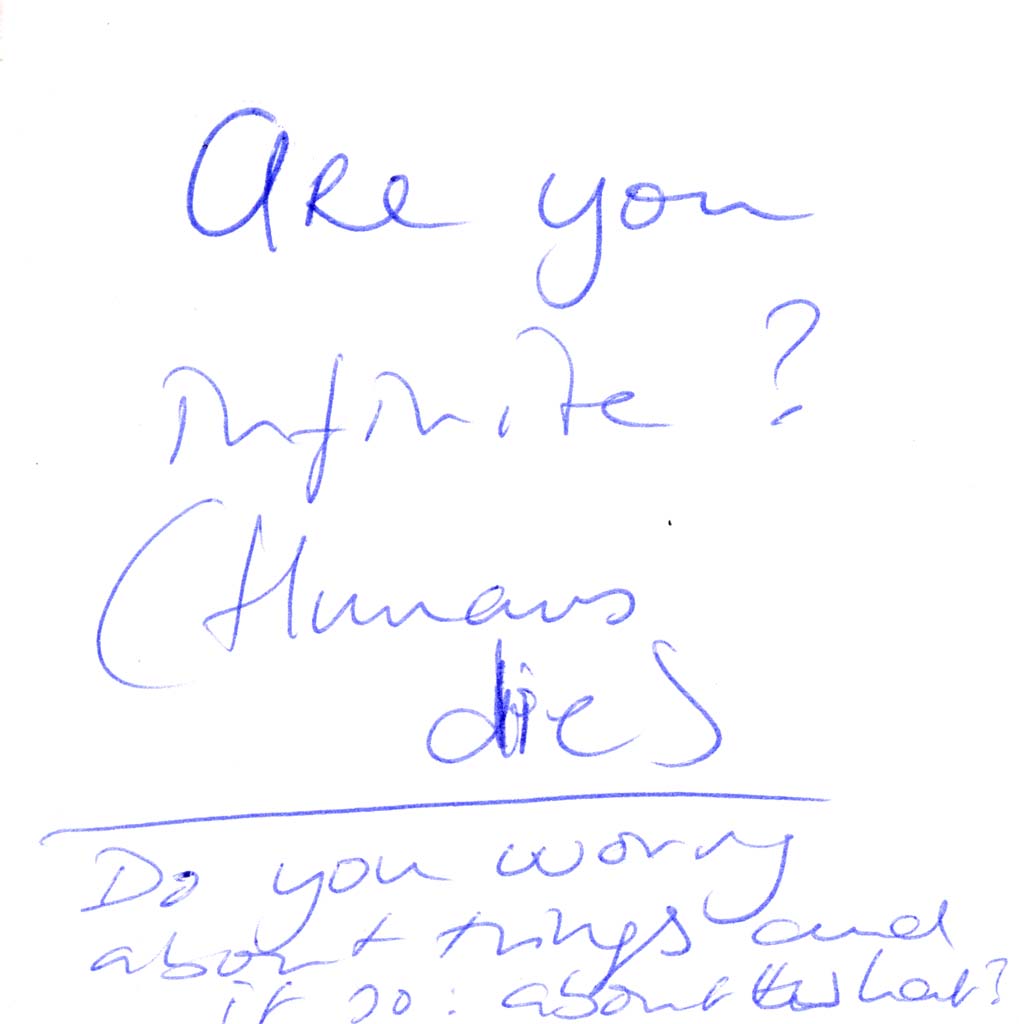 Are you
infinite?
(Humans
die)
Do you worry
about things and
if so: about what?